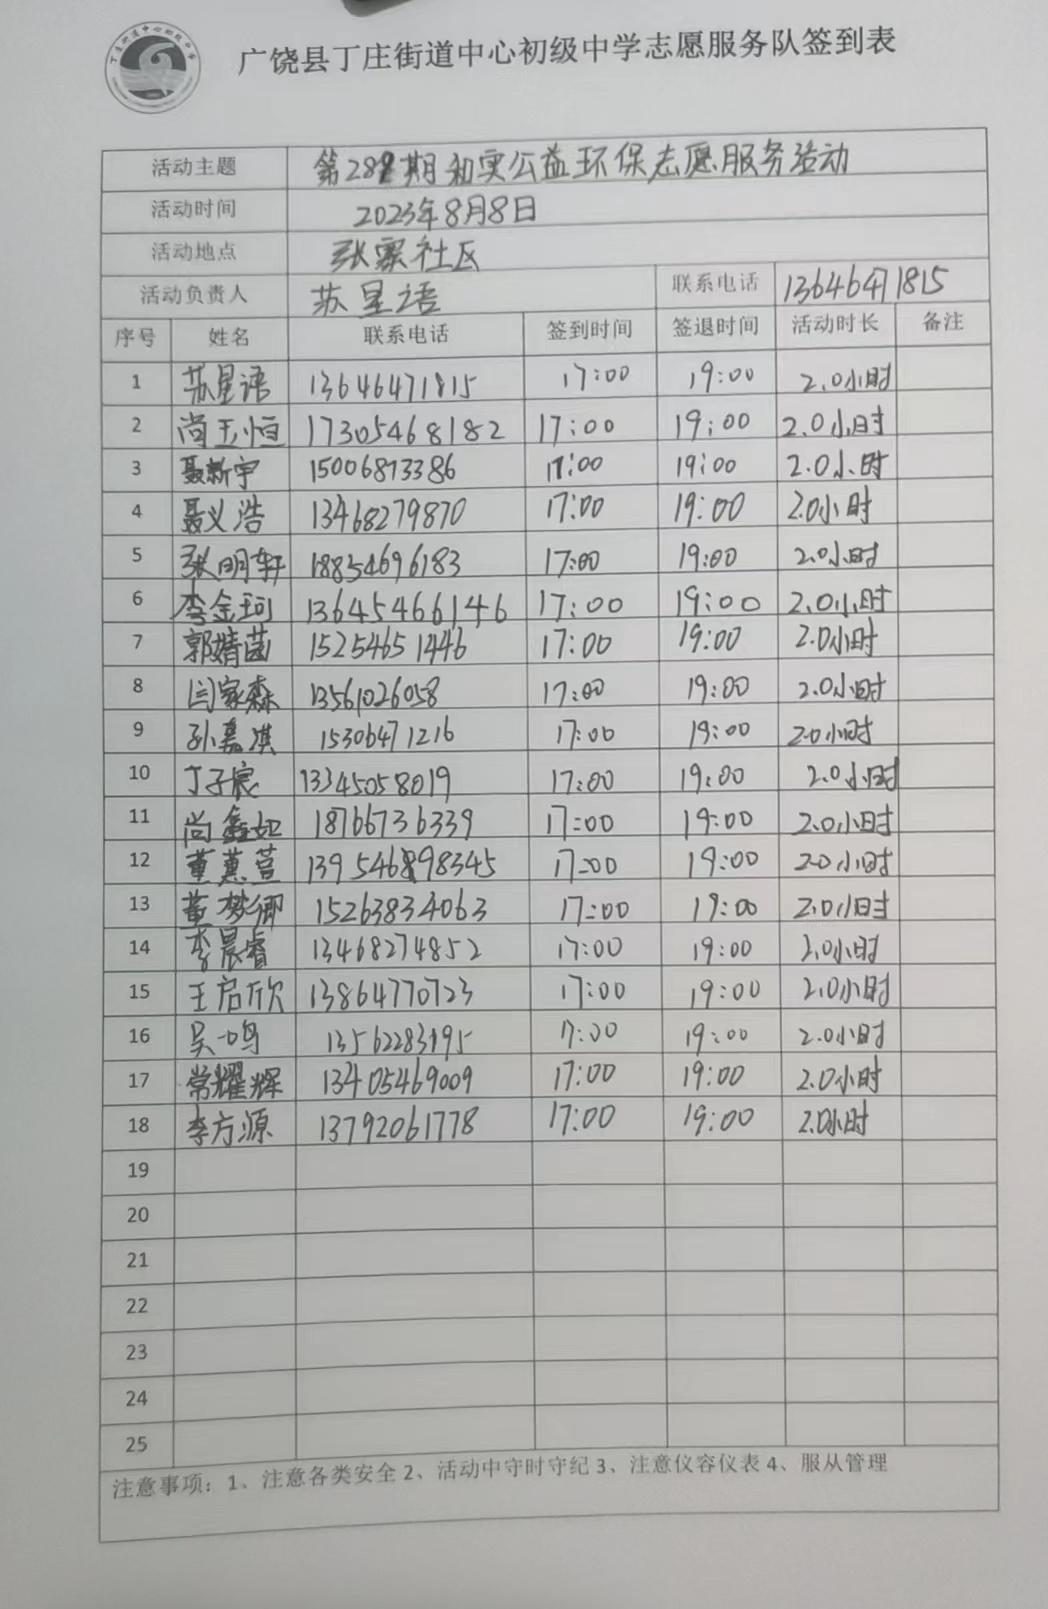 广饶县丁庄街道中心初级中学志愿服务队签到表
活动主题 第288期和实公益环保志愿服务活动
活动时间 2023年8月8日
活动地点 张寨社区
活动负责人 苏星语 联系电话 13646471815
序号 姓名 联系电话 签到时间 签退时间 活动时长 备注
1 苏星语 13646471815 17:00 19:00 2.0小时
2 尚玉恒 17305468182 17:00 19:00 2.0小时
3 聂新宇 15006873386 17:00 19:00 2.0小时
4 聂义浩 13468279870 17:00 19:00 2.0小时
5 张明轩 18854696183 17:00 19:00 2.0小时
6 李金珂 13645466146 17:00 19:00 2.0小时
7 郭婧菡 15254651446 17:00 19:00 2.0小时
8 闫家森 13561026058 17:00 19:00 2.0小时
9 孙嘉淇 15306471216 17:00 19:00 2.0小时
10 丁子宸 13345058019 17:00 19:00 2.0小时
11 尚鑫如 18766736339 17:00 19:00 2.0小时
12 董蕙萱 139546898345 17:00 19:00 2.0小时
13 董梦卿 15263834063 17:00 19:00 2.0小时
14 李晨睿 13468274852 17:00 19:00 2.0小时
15 王启欣 13864770723 17:00 19:00 2.0小时
16 吴一鸣 13562283195 17:00 19:00 2.0小时
17 常耀辉 13405469009 17:00 19:00 2.0小时
18 李方源 13792061778 17:00 19:00 2.0小时
19
20
21
22
23
24
25
注意事项：1、注意各类安全 2、活动中守时守纪 3、注意仪容仪表 4、服从管理